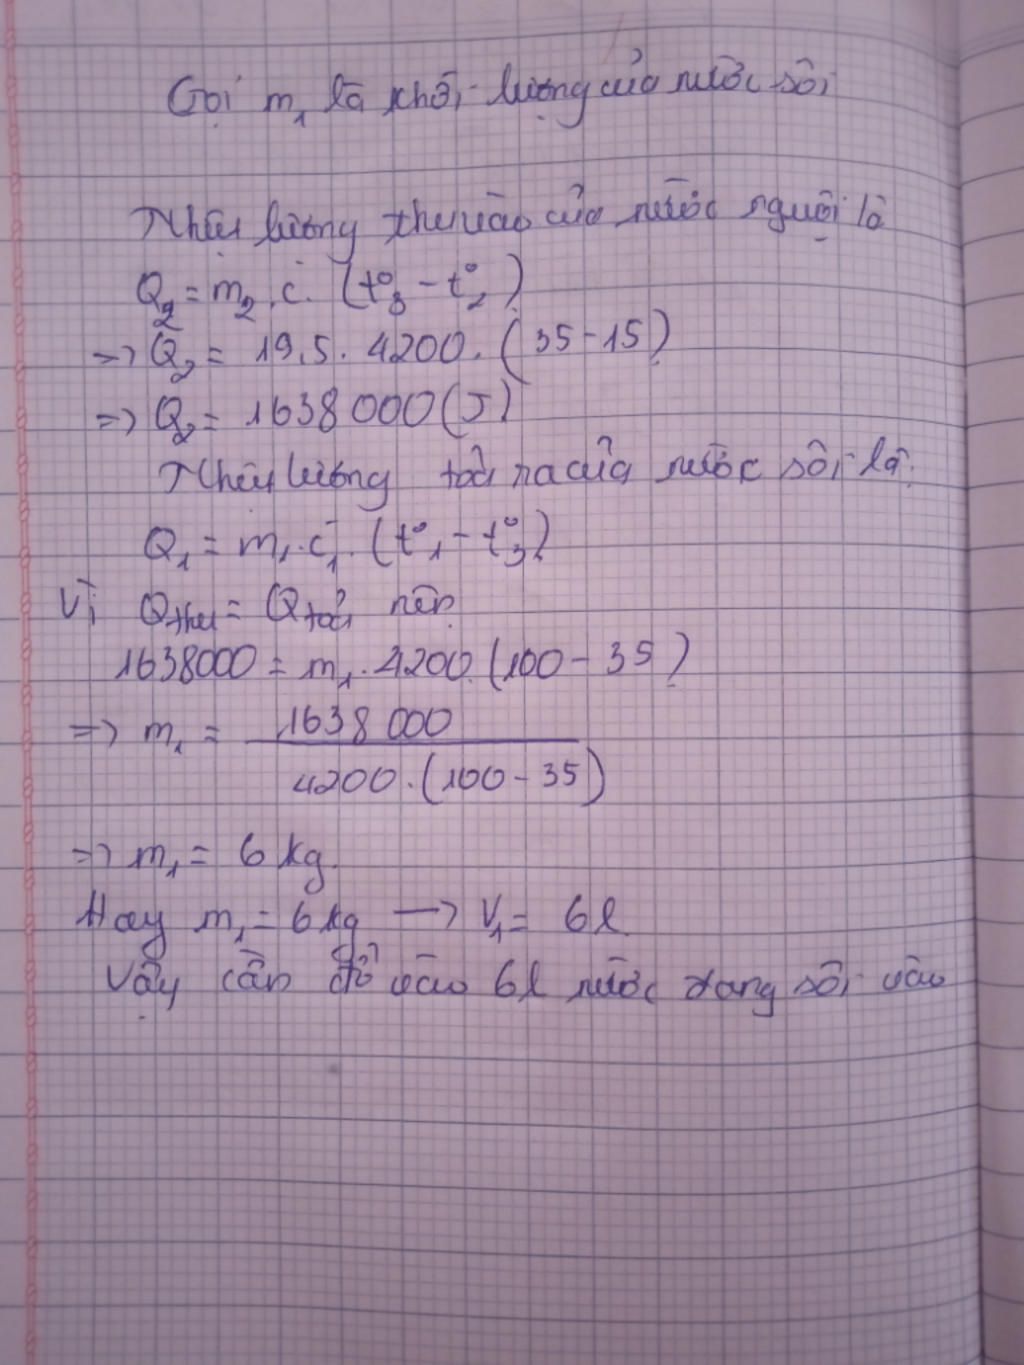 Gọi m₁ là khối lượng của nước sôi
Nhiệt lượng thu vào của nước nguội là
Q₂ = m₂.c. (t°₃ - t°₂)
=> Q₂ = 19,5. 4200. (35-15)
=> Q₂ = 1638000 (J)
Nhiệt lượng toả ra của nước sôi là.
Q₁ = m₁.c₁. (t°₁ - t°₃)
Vì Qthu = Qtoả nên
1638000 = m₁. 4200. (100 - 35)
=> m₁ = 1638 000
4200. (100 - 35)
=> m₁ = 6 kg.
Hay m₁ = 6 kg —> V₁ = 6l.
Vậy cần đổ vào 6l nước đang sôi vào